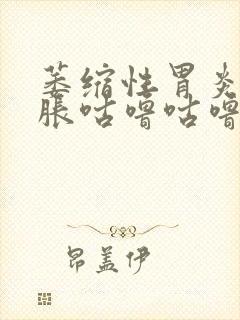 萎缩性胃炎
胀咕噜咕噜
昂盖伊